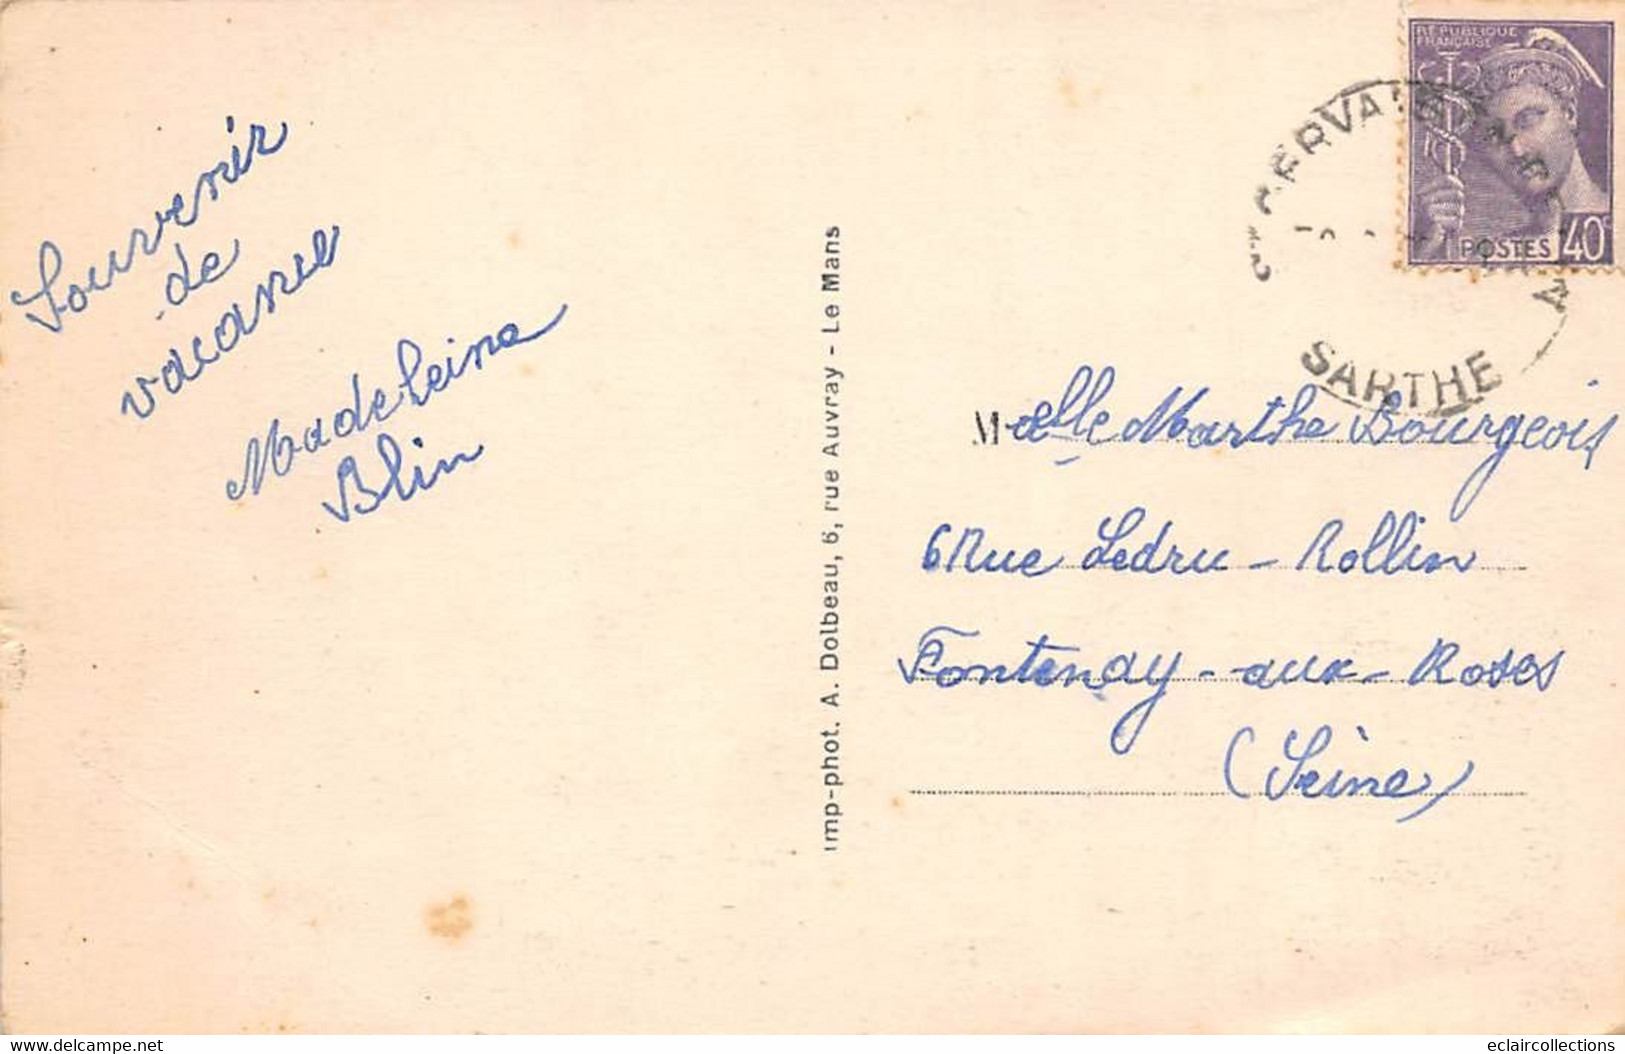 Souvenir
de
vacances
Madeleine
Blin
Imp-phot. A. Dolbeau, 6, rue Auvray - Le Mans
RÉPUBLIQUE
FRANÇAISE
POSTES 40c
SARTHE
Melle Marthe Bourgeois
6 Rue Ledru-Rollin
Fontenay-aux-Roses
(Seine)
delcampe.net
eclaircollections